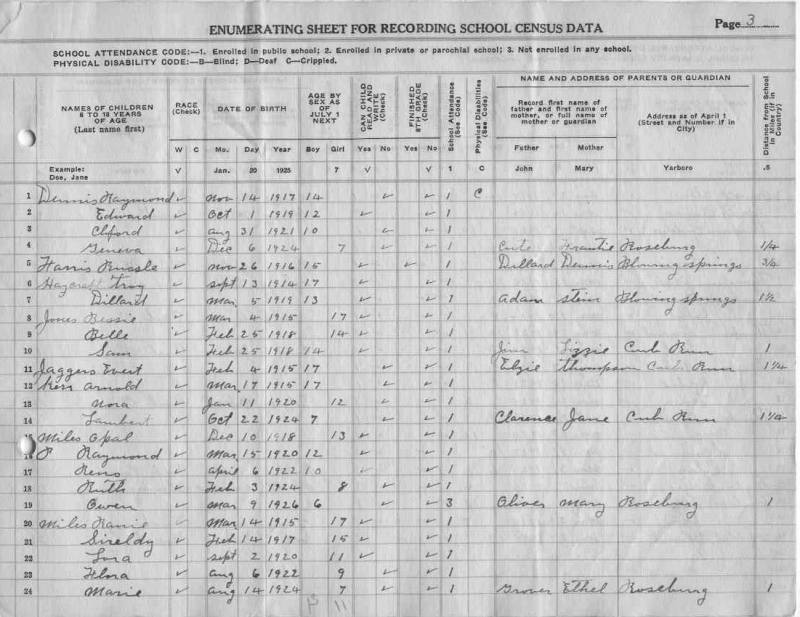 Page 3
ENUMERATING SHEET FOR RECORDING SCHOOL CENSUS DATA
SCHOOL ATTENDANCE CODE:—1. Enrolled in public school; 2. Enrolled in private or parochial school; 3. Not enrolled in any school.
PHYSICAL DISABILITY CODE:—B—Blind; D—Deaf C—Crippled.
NAMES OF CHILDREN 6 TO 18 YEARS OF AGE (Last name first) RACE (Check) DATE OF BIRTH AGE BY SEX AS OF JULY 1 NEXT CAN CHILD READ AND WRITE (Check) FINISHED 8TH GRADE (Check) School Attendance (See Code) Physical Disabilities (See Code) NAME AND ADDRESS OF PARENTS OR GUARDIAN Distance from School in Miles (if in Country)
Record first name of father and first name of mother, or full name of mother or guardian Address as of April 1 (Street and Number if in City)
W C Mo. Day Year Boy Girl Yes No Yes No Father Mother
Example: Doe, Jane V Jan. 20 1925 7 V V 1 C John Mary Yarboro .5
1 Dennis Raymond ✓ Nov 14 1917 14 ✓ ✓ 1 C
2 Edward ✓ Oct 1 1919 12 ✓ ✓ 1
3 Clifford ✓ Aug 31 1921 10 ✓ ✓ 1
4 Geneva ✓ Dec 6 1924 7 ✓ ✓ 1 Roseburg 1/4
5 Harris ✓ Nov 26 1916 15 ✓ ✓ 1 Dillard Dennis Blowing springs 3/4
6 Haycraft Troy ✓ Sept 13 1914 17 ✓ ✓ 1
7 Dillard ✓ Mar 5 1919 13 ✓ ✓ 1 Adam Blowing springs 1 1/2
8 Jones Bessie ✓ Mar 4 1915 17 ✓ ✓ 1
9 Belle ✓ Feb 25 1918 14 ✓ ✓ 1
10 Sam ✓ Feb 25 1918 14 ✓ ✓ 1 Jim Lizzie Cub Run 1
11 Jaggers Evert ✓ Feb 4 1915 17 ✓ ✓ 1 Elzie Thompson Cub Run 1 1/4
12 Kerr Arnold ✓ Mar 17 1915 17 ✓ ✓ 1
13 Nora ✓ Jan 11 1920 12 ✓ ✓ 1
14 Lambert ✓ Oct 22 1924 7 ✓ ✓ 1 Clarence Jane Cub Run 1 1/4
15 Miles Opal ✓ Dec 10 1918 13 ✓ ✓ 1
16 Raymond ✓ Mar 15 1920 12 ✓ ✓ 1
17 Reno ✓ April 6 1922 10 ✓ ✓ 1
18 Ruth ✓ Feb 3 1924 8 ✓ ✓ 1
19 Owen ✓ Mar 9 1926 6 ✓ ✓ 3 Oliver Mary Roseburg 1
20 Miles ✓ Mar 14 1915 17 ✓ ✓ 1
21 Sireldy ✓ Feb 14 1917 15 ✓ ✓ 1
22 Lora ✓ Sept 2 1920 11 ✓ ✓ 1
23 Flora ✓ Aug 6 1922 9 ✓ ✓ 1
24 Marie ✓ Aug 14 1924 7 ✓ ✓ 1 Grover Ethel Roseburg 1
11